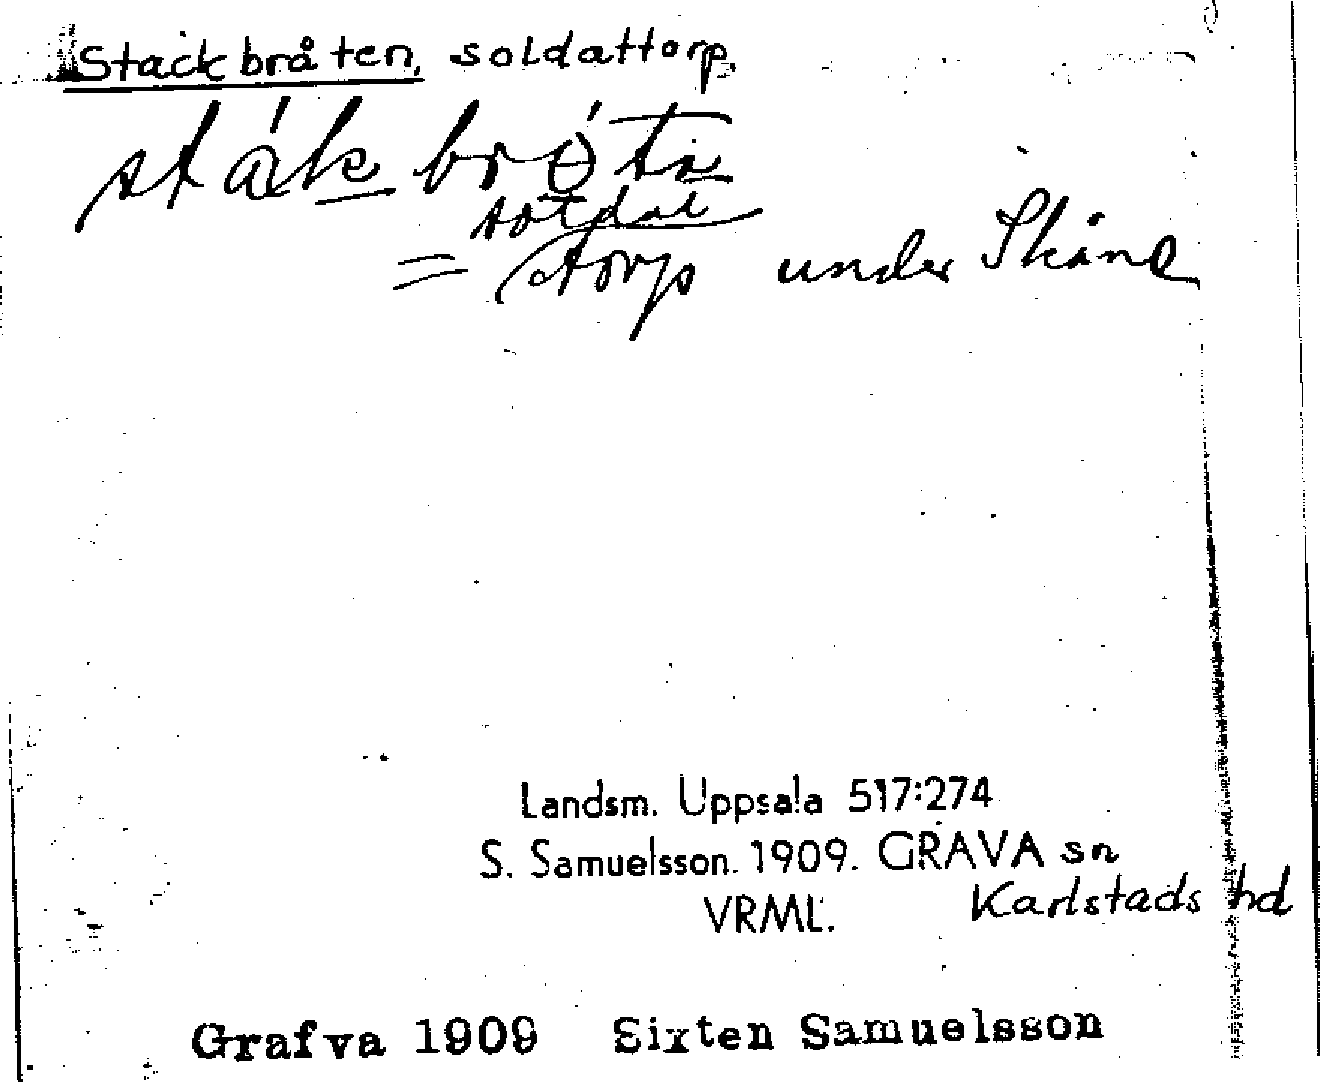 Stackbråten, soldattorp.
soldat
= torp under Skåne
Landsm. Uppsala 517:274
S. Samuelsson. 1909. GRAVA sn
VRML. Karlstads hd
Grafva 1909 Sixten Samuelsson